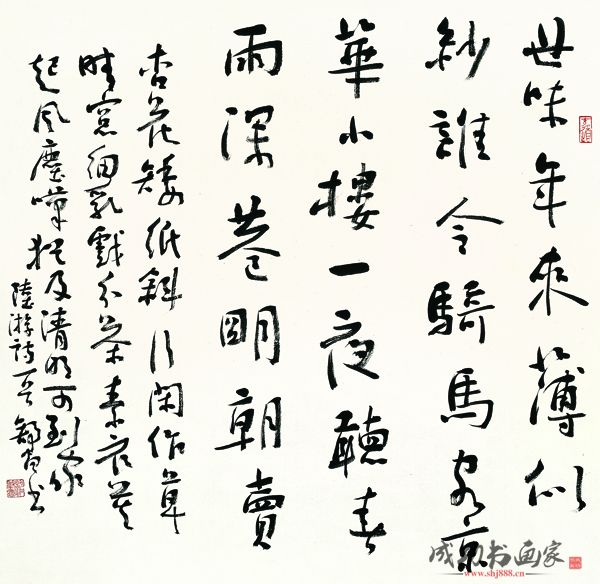 世味年來薄似
紗誰令騎馬客京
華小樓一夜聽春
雨深巷明朝賣
杏花矮紙斜行閑作草
晴窓細乳戲分茶素衣莫
起風塵嘆猶及清明可到家
陸游詩一首
书
成功书画家
www.shj888.cn